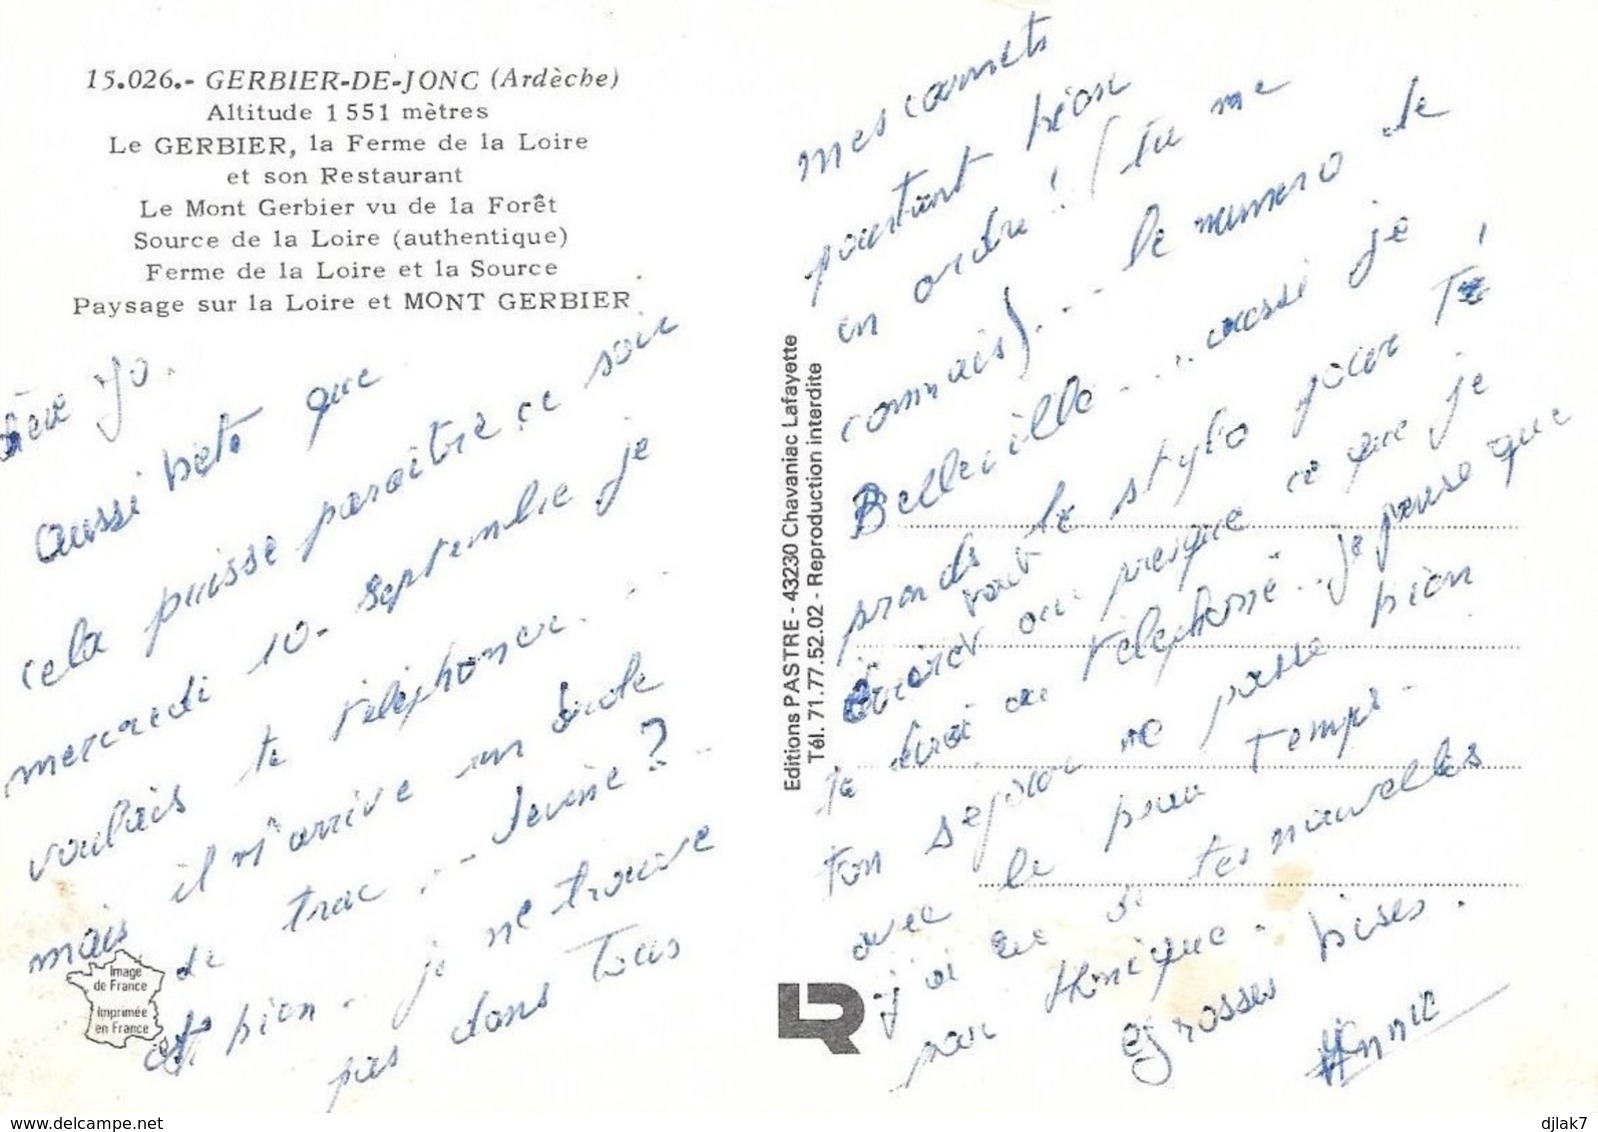 15.026.- GERBIER-DE-JONC (Ardèche)
Altitude 1 551 mètres
Le GERBIER, la Ferme de la Loire
et son Restaurant
Le Mont Gerbier vu de la Forêt
Source de la Loire (authentique)
Ferme de la Loire et la Source
Paysage sur la Loire et MONT GERBIER
Yo.
aussi bête que
cela puisse paraître ce soir
mercredi 10 - septembre je
voulais te téléphoner...
mais il m'arrive un drole
de truc... devine?
et bien - je ne trouve
pas dans tous
Image
de France
Imprimée
en France
Editions PASTRE - 43230 Chavaniac Lafayette
Tél. 71.77.52.02 - Reproduction interdite
mes carnets
pourtant bien
en ordre! (tu me
connais)... le numero de
Belleville... aussi je
prends le stylo pour te
tout ou presque ce que je
te dirai au téléphone... je pense que
ton sejour se passe bien
avec le beau temps.
j'ai eu de tes nouvelles
par Monique. bises.
grosses
Annie
djlak7